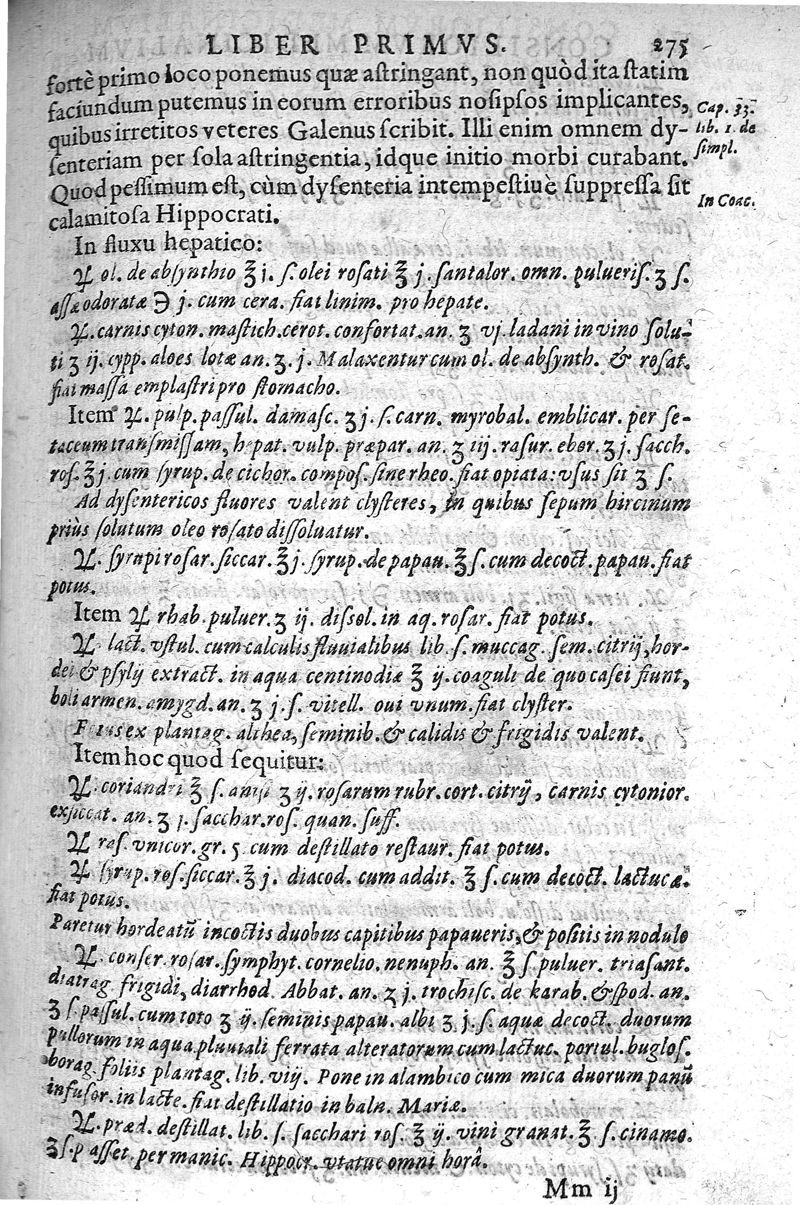 LIBER PRIMVS. 275
fortè primo loco ponemus quæ astringant, non quòd ita statim
faciundum putemus in eorum erroribus nosipsos implicantes, Cap. 33.
quibus irretitos veteres Galenus scribit. Illi enim omnem dy- lib. 1. de
senteriam per sola astringentia, idque initio morbi curabant. simpl.
Quod pessimum est, cùm dysenteria intempestiuè suppressa sit In Coac.
calamitosa Hippocrati.
In fluxu hepatico:
℞ ol. de absynthio ℥ j. s. olei rosati ℥ j. santalor. omn. pulueris. ʒ s.
assæ odoratæ ℈ j. cum cera. fiat linim. pro hepate.
℞. carnis cyton. mastich. cerot. confortat. an. ʒ vj. ladani in vino solu-
ti ʒ ij. cypp. aloes lotæ an. ʒ. j. Malaxentur cum ol. de absynth. & rosat.
fiat massa emplastri pro stomacho.
Item ℞. pulp. passul. damasc. ʒ j. s. carn. myrobal. emblicar. per se-
taceum transmissam, hepat. vulp. præpar. an. ʒ iij. rasur. ebor. ʒ j. sacch.
ros. ℥ j. cum syrup. de cichor. compos. sine rheo. fiat opiata: vsus sit ʒ s.
Ad dysentericos fluores valent clysteres, in quibus sepum hircinum
priùs solutum oleo rosato dissoluatur.
℞. syrupi rosar. siccar. ℥ j. syrup. de papau. ℥ s. cum decoct. papau. fiat
potus.
Item ℞ rhab. puluer. ʒ ij. dissol. in aq. rosar. fiat potus.
℞ lact. vstul. cum calculis fluuialibus lib. s. muccag. sem. citrij, hor-
dei & psylij extract. in aqua centinodiæ ℥ ij. coaguli de quo casei fiunt,
boli armen. amygd. an. ʒ j. s. vitell. oui vnum. fiat clyster.
Fotus ex plantag. althea, seminib. & calidis & frigidis valent.
Item hoc quod sequitur:
℞. coriandri ℥ s. anisi ʒ ij. rosarum rubr. cort. citrij, carnis cytonior.
exsiccat. an. ʒ j. sacchar. ros. quan. suff.
℞ ras. vnicor. gr. 5 cum destillato restaur. fiat potus.
℞ syrup. ros. siccar. ℥ j. diacod. cum addit. ℥ s. cum decoct. lactucæ.
fiat potus.
Paretur hordeatū incoctis duobus capitibus papaueris, & positis in nodulo
℞. conser. rosar. symphyt. cornelio. nenuph. an. ℥ s. puluer. triasant.
diatrag. frigidi, diarrhod. Abbat. an. ʒ j. trochisc. de karab. & spod. an.
ʒ s. passul. cum toto ʒ ij. seminis papau. albi ʒ j. s. aquæ decoct. duorum
pullorum in aqua pluuiali ferrata alteratorum cum lactuc. portul. buglos.
borag. foliis plantag. lib. viij. Pone in alambico cum mica duorum panū
infusor. in lacte. fiat destillatio in baln. Mariæ.
℞. præd. destillat. lib. s. sacchari ros. ℥ ij. vini granat. ℥ s. cinamo.
ʒ s. passet. per manic. Hippocr. vtatur omni horâ.
Mm ij